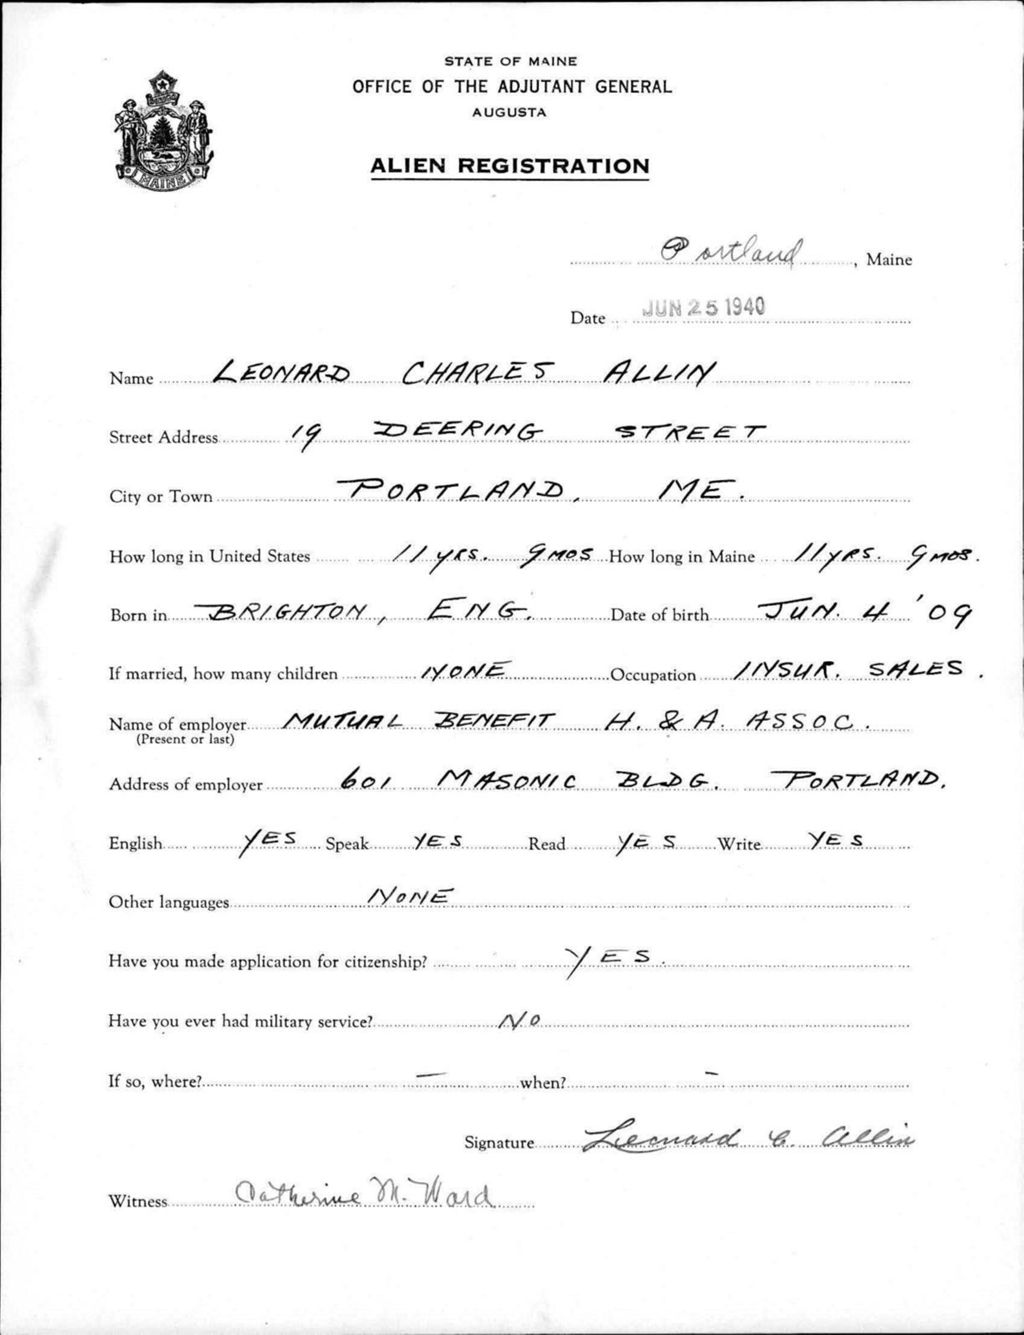 STATE OF MAINE
OFFICE OF THE ADJUTANT GENERAL
AUGUSTA
MAINE
ALIEN REGISTRATION
Portland, Maine
Date JUN 25 1940
Name LEONARD CHARLES ALLIN
Street Address 19 DEERING STREET
City or Town PORTLAND, ME.
How long in United States 11 yrs. 9 mos How long in Maine 11 yrs. 9 mos.
Born in BRIGHTON, ENG. Date of birth JUN. 4 '09
If married, how many children NONE Occupation INSUR. SALES.
Name of employer MUTUAL BENEFIT H. & A. ASSOC.
(Present or last)
Address of employer 601 MASONIC BLDG. PORTLAND.
English YES Speak YES Read YES Write YES
Other languages NONE
Have you made application for citizenship? YES.
Have you ever had military service? NO
If so, where? — when? –
Signature Leonard C. Allin
Witness Catherine M. Ward